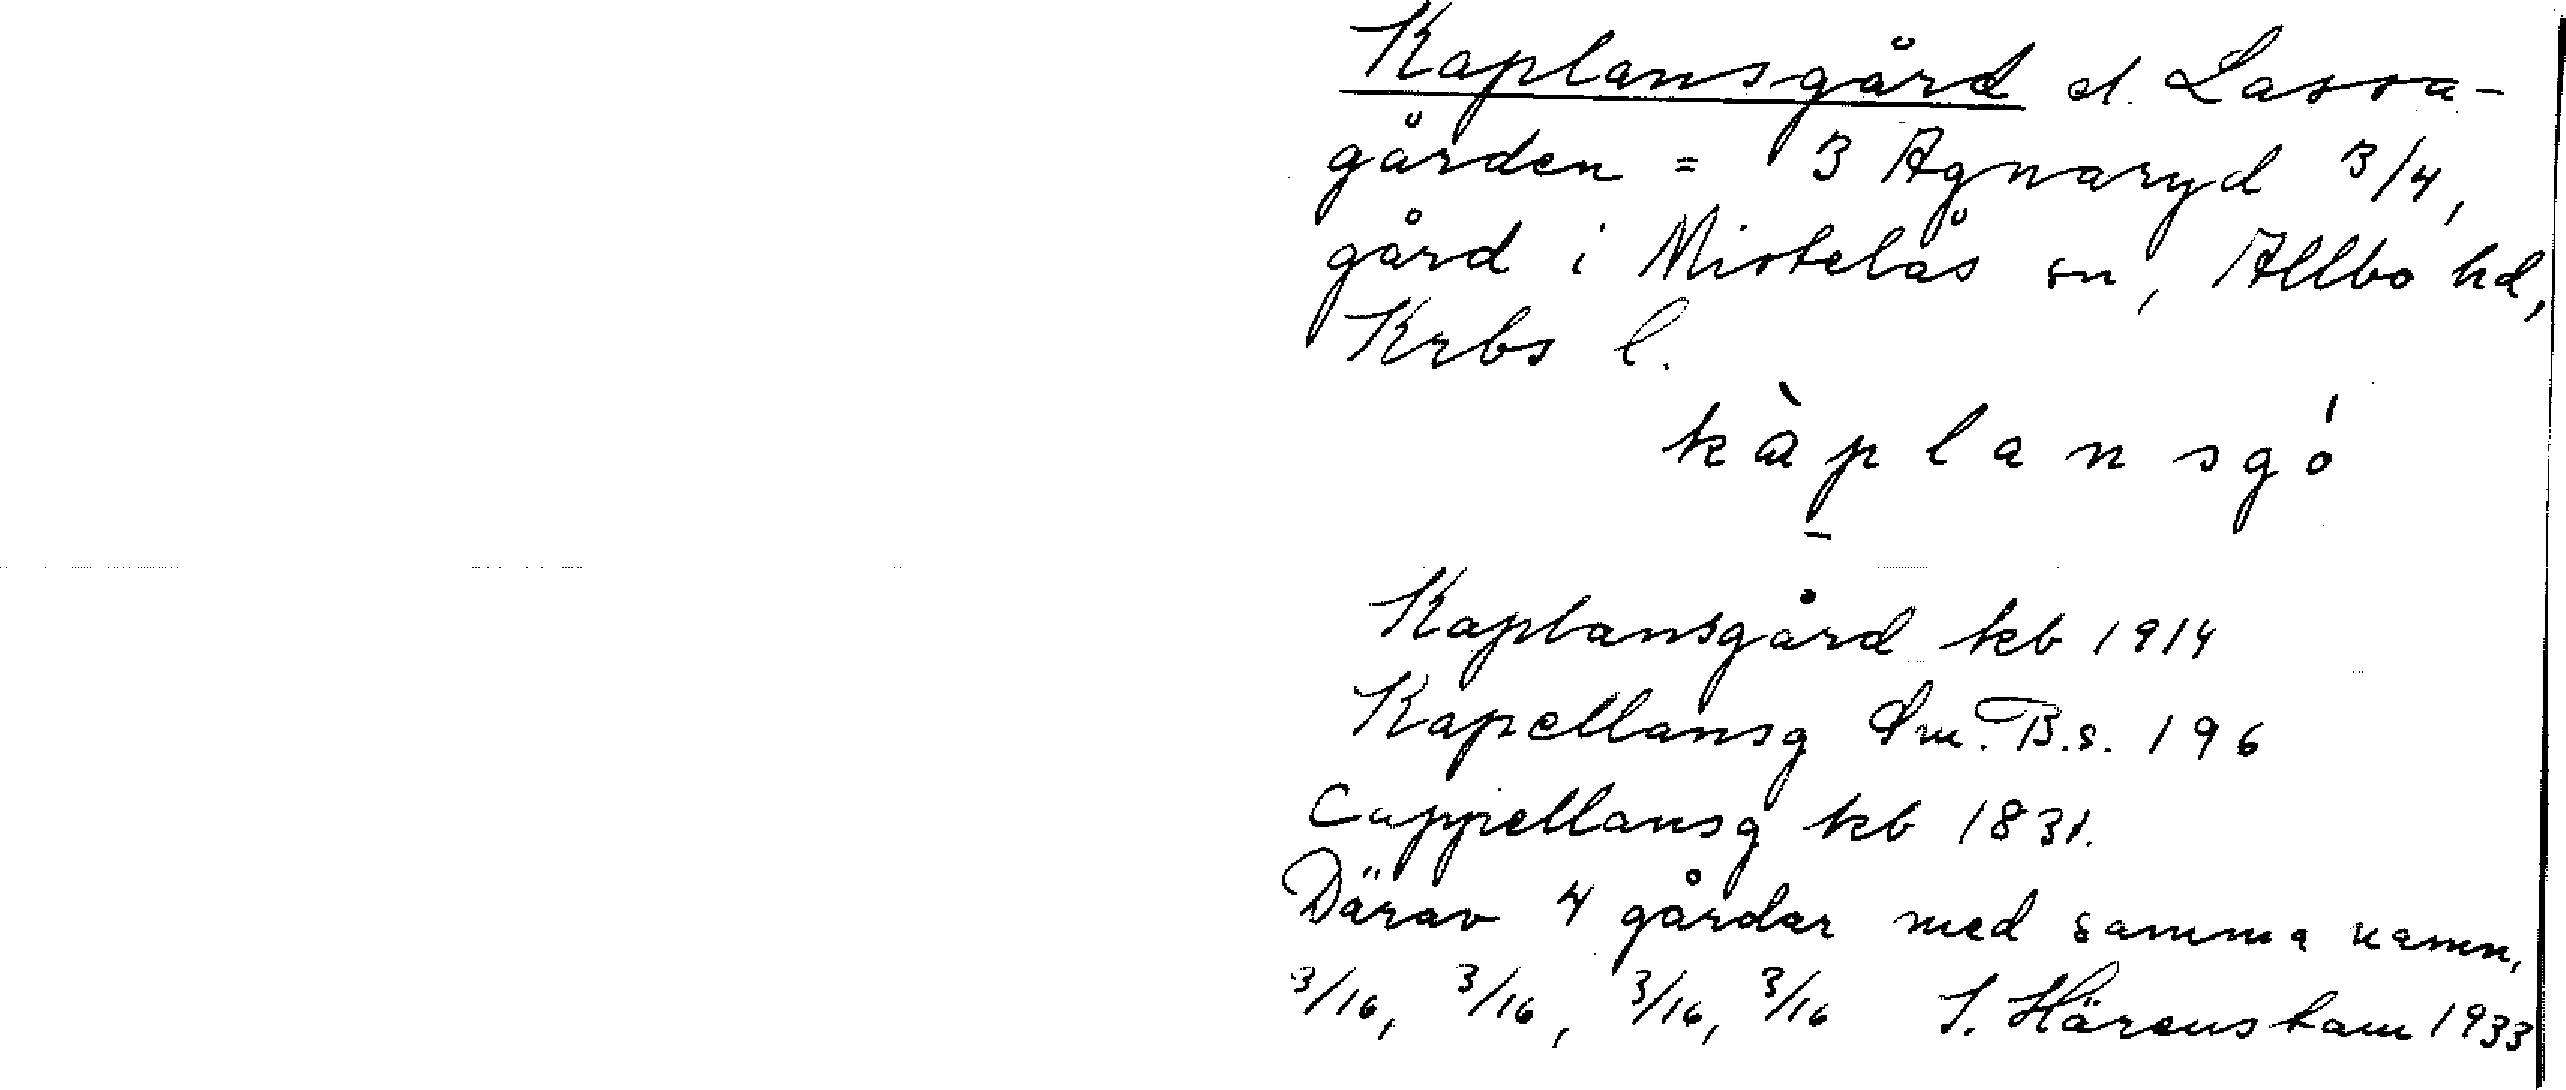 Kaplansgård el. Lassa-
gården = 3 Agnaryd 3/4,
gård i Mistelås sn, Allbo hd,
Krbs l.
kàplansgó
Kaplansgård kb 1914
Kapellansg Sm. B.s. 196
Cappellansg kb 1831.
Därav 4 gårdar med samma namn,
3/16, 3/16, 3/16, 3/16 S. Härenstam 1933